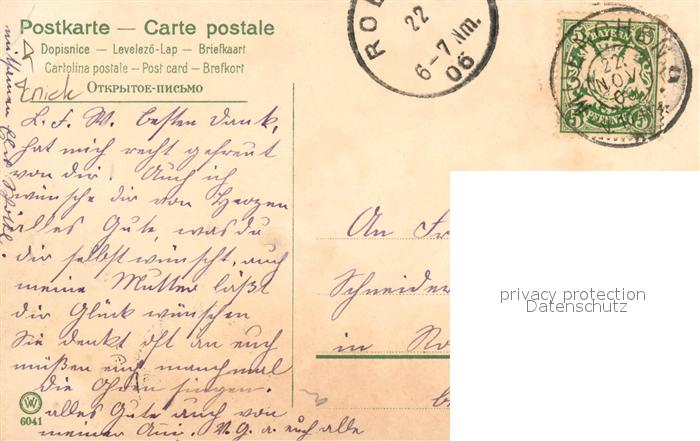 Postkarte — Carte postale
Dopisnice — Levelező-Lap — Briefkaart
Cartolina postale — Post card — Brefkort
Открытое-письмо
Knick
L. F. W. besten Dank,
hat mich recht gefreut
von dir. Auch ich
wünsche dir von Herzen
alles Gute, was du
dir selbst wünscht, auch
meine Mutter läßt
dir Glück wünschen
Sie denkt oft an euch
müßen euch manchmal
die Ohren singen.
alles Gute auch von
meiner V. G. a. euch alle
6041
22
6-7 Nm.
06
BAYERN
22.
NOV
5 5
PFENNIG
An Fr
Schneider
in Ro
privacy protection
Datenschutz